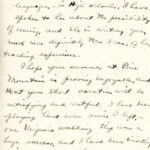 languages, in High schools, I have
spoken to her about the possibility
of coming and she is writing you
much was definitely Mrs. I can, of her
teaching experience.
I hope your summer at Pine
Mountain is proving enjoyable, and
that your short vacation will be
satisfying and restful. I have been
playing hard ever since I left,
our Virginia walking trip was a
huge success, and I have been to